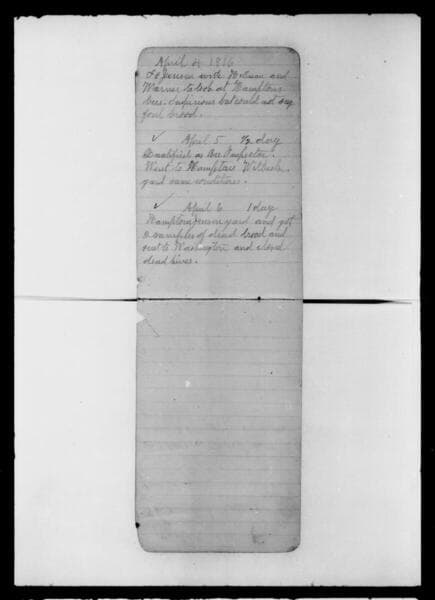 April 4 1916
To Jerson with Hitman and
Warner to look at Hamptons
bees. Suspicious but could not say
foul brood.
✓ April 5 ½ day
Qualified as Bee Inspector.
Went to Hamptons Wilbush
yard same conditions.
✓ April 6 1 day
Hamptons Jerson yard and got
2 samples of dead brood and
sent to Washington and closed
dead hives.